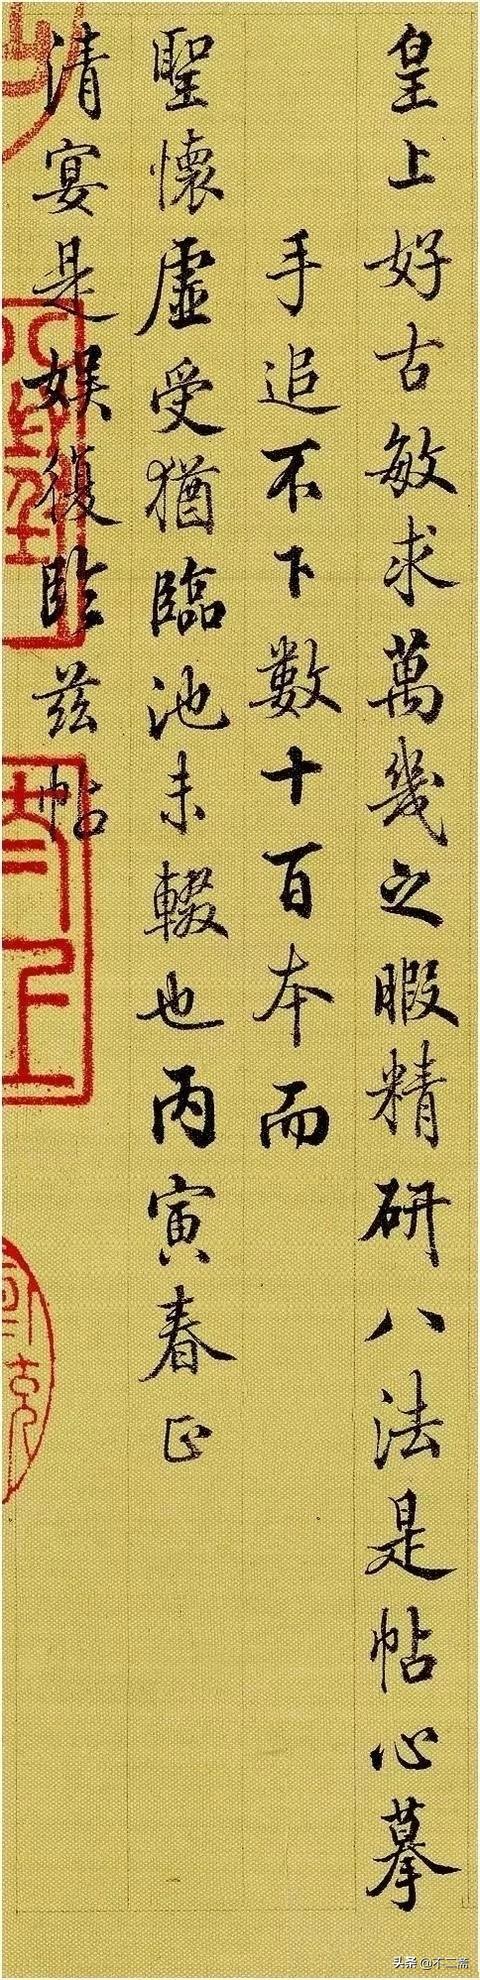 皇上好古敏求萬幾之暇精研八法是帖心摹
手追不下數十百本而
聖懷虛受猶臨池未輟也丙寅春正
清宴是娛復臨茲帖
头条@不二斋